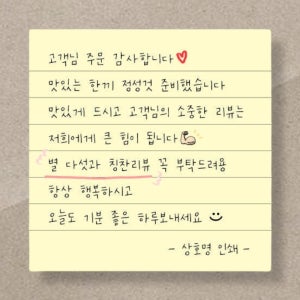 고객님 주문 감사합니다
맛있는 한끼 정성껏 준비했습니다
맛있게 드시고 고객님의 소중한 리뷰는
저희에게 큰 힘이 됩니다
별 다섯과 칭찬리뷰 꼭 부탁드려용
항상 행복하시고
오늘도 기분 좋은 하루보내세요
- 상호명 인쇄 -